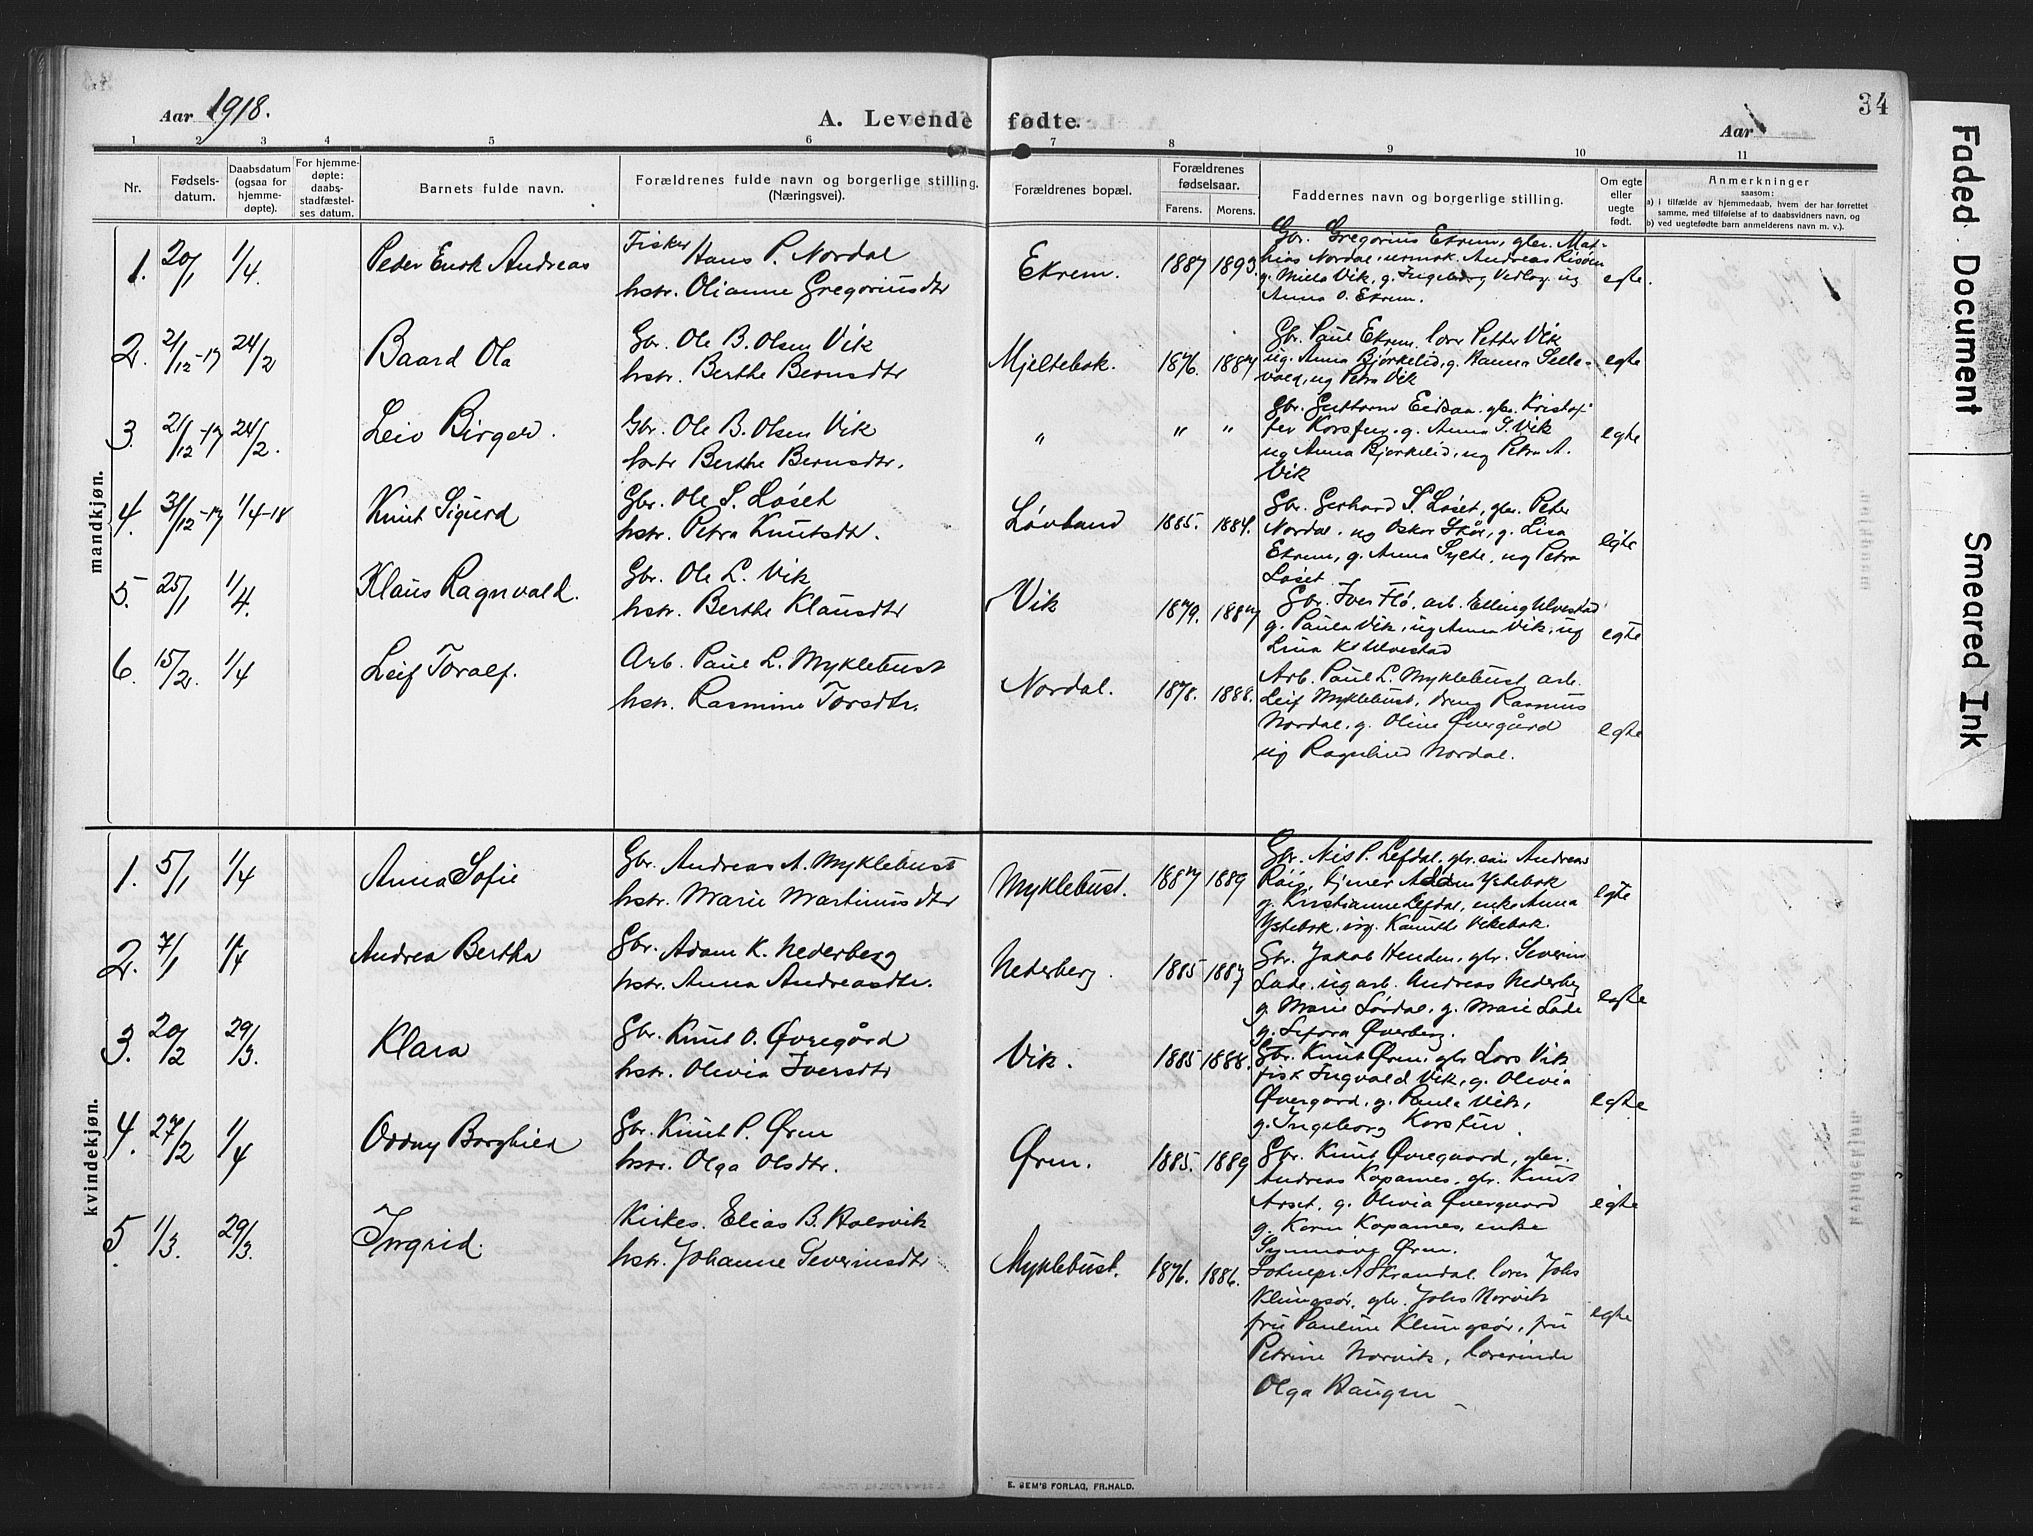 34
Aar 1918.
A. Levende fødte.
Aar
1 2 3 4 5 6 7 8 9 10 11
Nr.
Fødsels-
datum.
Daabsdatum
(ogsaa for
hjemme-
døpte).
For hjemme-
døpte:
daabs-
stadfæstel-
ses datum.
Barnets fulde navn.
Forældrenes fulde navn og borgerlige stilling.
(Næringsvei).
Forældrenes bopæl.
Forældrenes
fødselsaar.
Farens. Morens.
Faddernes navn og borgerlige stilling.
Om egte
eller
uegte
født.
Anmerkninger
saasom:
a) i tilfælde av hjemmedaab, hvem der har forrettet
samme, med tilføielse af to daabsvidners navn, og
b) ved uegtefødte barn anmelderens navn m. v.).
mandkjøn.
1. 20/1 1/4. Peder Enok Andreas
Fisker Hans P. Nordal
hstr. Olianne Gregoriusdtr
Ekrem. 1887 1893.
Gbr. Gregorius Ekrem, gbr. Mat-
hias Nordal, Andreas
g. Niels Vik, g. Ingeborg Vedlog, ug
Anna O. Ekrem.
egte.
2. 21/12-17 24/2 Baard Ola
Gbr. Ole B. Olsen Vik
hstr. Berthe Berntsdtr
Mjeltebak. 1876. 1887
Gbr. Paul Ekrem, lær Petter Vik
ug. Anna Bjørkelid, g. Hanna Selle-
vold, ug Petra Vik
egte
3. 21/12-17 24/2. Leiv Birger.
Gbr. Ole B. Olsen Vik
hstr Berthe Berntsdtr.
" " "
Gbr. Guttorm Eidsaa, gbr. Kristof-
fer Korsfur, g. Anna S. Vik
ug Anna Bjørkelid, ug Petra A.
Vik
egte
4. 31/12-17 1/4-18 Knut Sigurd
Gbr. Ole S. Løset
hstr. Petra Knutsdtr.
Løvland 1885. 1884.
Gbr. Gerhard S. Løset, gbr. Peter
Nordal, ug Oskar Skår, g. Lisa
Ekrem, g. Anna Sylte, ug Petra
Løset.
egte
5. 25/1 1/4. Klaus Ragnvald.
Gbr. Ole L. Vik
hstr. Berthe Klausdtr
Vik 1879. 1887
Gbr. Iver Flø, arb. Elling Ulvestad
g. Paula Vik, ug Anna Vik, ug
Lina Kl Ulvestad
egte
6. 15/2. 1/4 Leif Toralf.
Arb. Paul L. Myklebust
hstr. Rasmine Torsdtr.
Nordal. 1878. 1888.
Arb. Paul L. Myklebust, arb.
Leif Myklebust, dreng Rasmus
Nordal, g. Oline Øvergård
ug Ragnhild Nordal.
egte
kvindekjøn.
1. 5/1 1/4 Anna Sofie
Gbr. Andreas A. Myklebust
hstr. Marie Martinusdtr
Myklebust. 1887 1889
Gbr. Nis P. Lefdal, gbr. søn Andreas
tjener Ystebok
g. Kristianne Lefdal, enke Anna
Ystebok, Vikebok.
egte
2. 7/1 1/4 Andrea Bertha
Gbr. Adam K. Nederberg
hstr. Anna Andreasdtr.
Nederberg. 1885 1887
Gbr. Jakob Henden, gbr. Severin
Lade, ug arb. Andreas Nederberg
g. Marie Lørdal, g. Marie Lade
g. Sefora Øverberg.
egte
3. 20/2 29/3. Klara
Gbr. Knut O. Øvregård
hstr. Olivia Iversdtr
Vik. 1885 1888.
Gbr. Knut Ørm, gbr Lars Vik
fisk Ingvald Vik, g. Olivia
Øvergard, g. Paula Vik,
g. Ingeborg Korsfur.
egte
4. 27/2 1/4 Oddny Borghild
Gbr. Knut P. Ørm
hstr. Olga Olsdtr.
Ørm. 1885. 1889
Gbr. Knut Øvregaard, gbr.
Andreas Kopanes, gbr. Knut
Aarset, g. Olivia Øvergaard
g. Karen Kopanes, enke
Synnøve Ørm.
egte
5. 1/3. 29/3. Ingrid.
Kirkes. Elias B. Holsvik
hstr. Johanne Severinsdtr
Myklebust. 1876. 1886.
Sokнepr. A Skrondal, lærer Johs
Klungsør, gbr. Johs Norvik
fru Pauline Klungsør, fru
Petrine Norvik, lærerinde
Olga Haugen
egte
E. SEM'S FORLAG, FR.HALD.
Faded Document
Smeared Ink